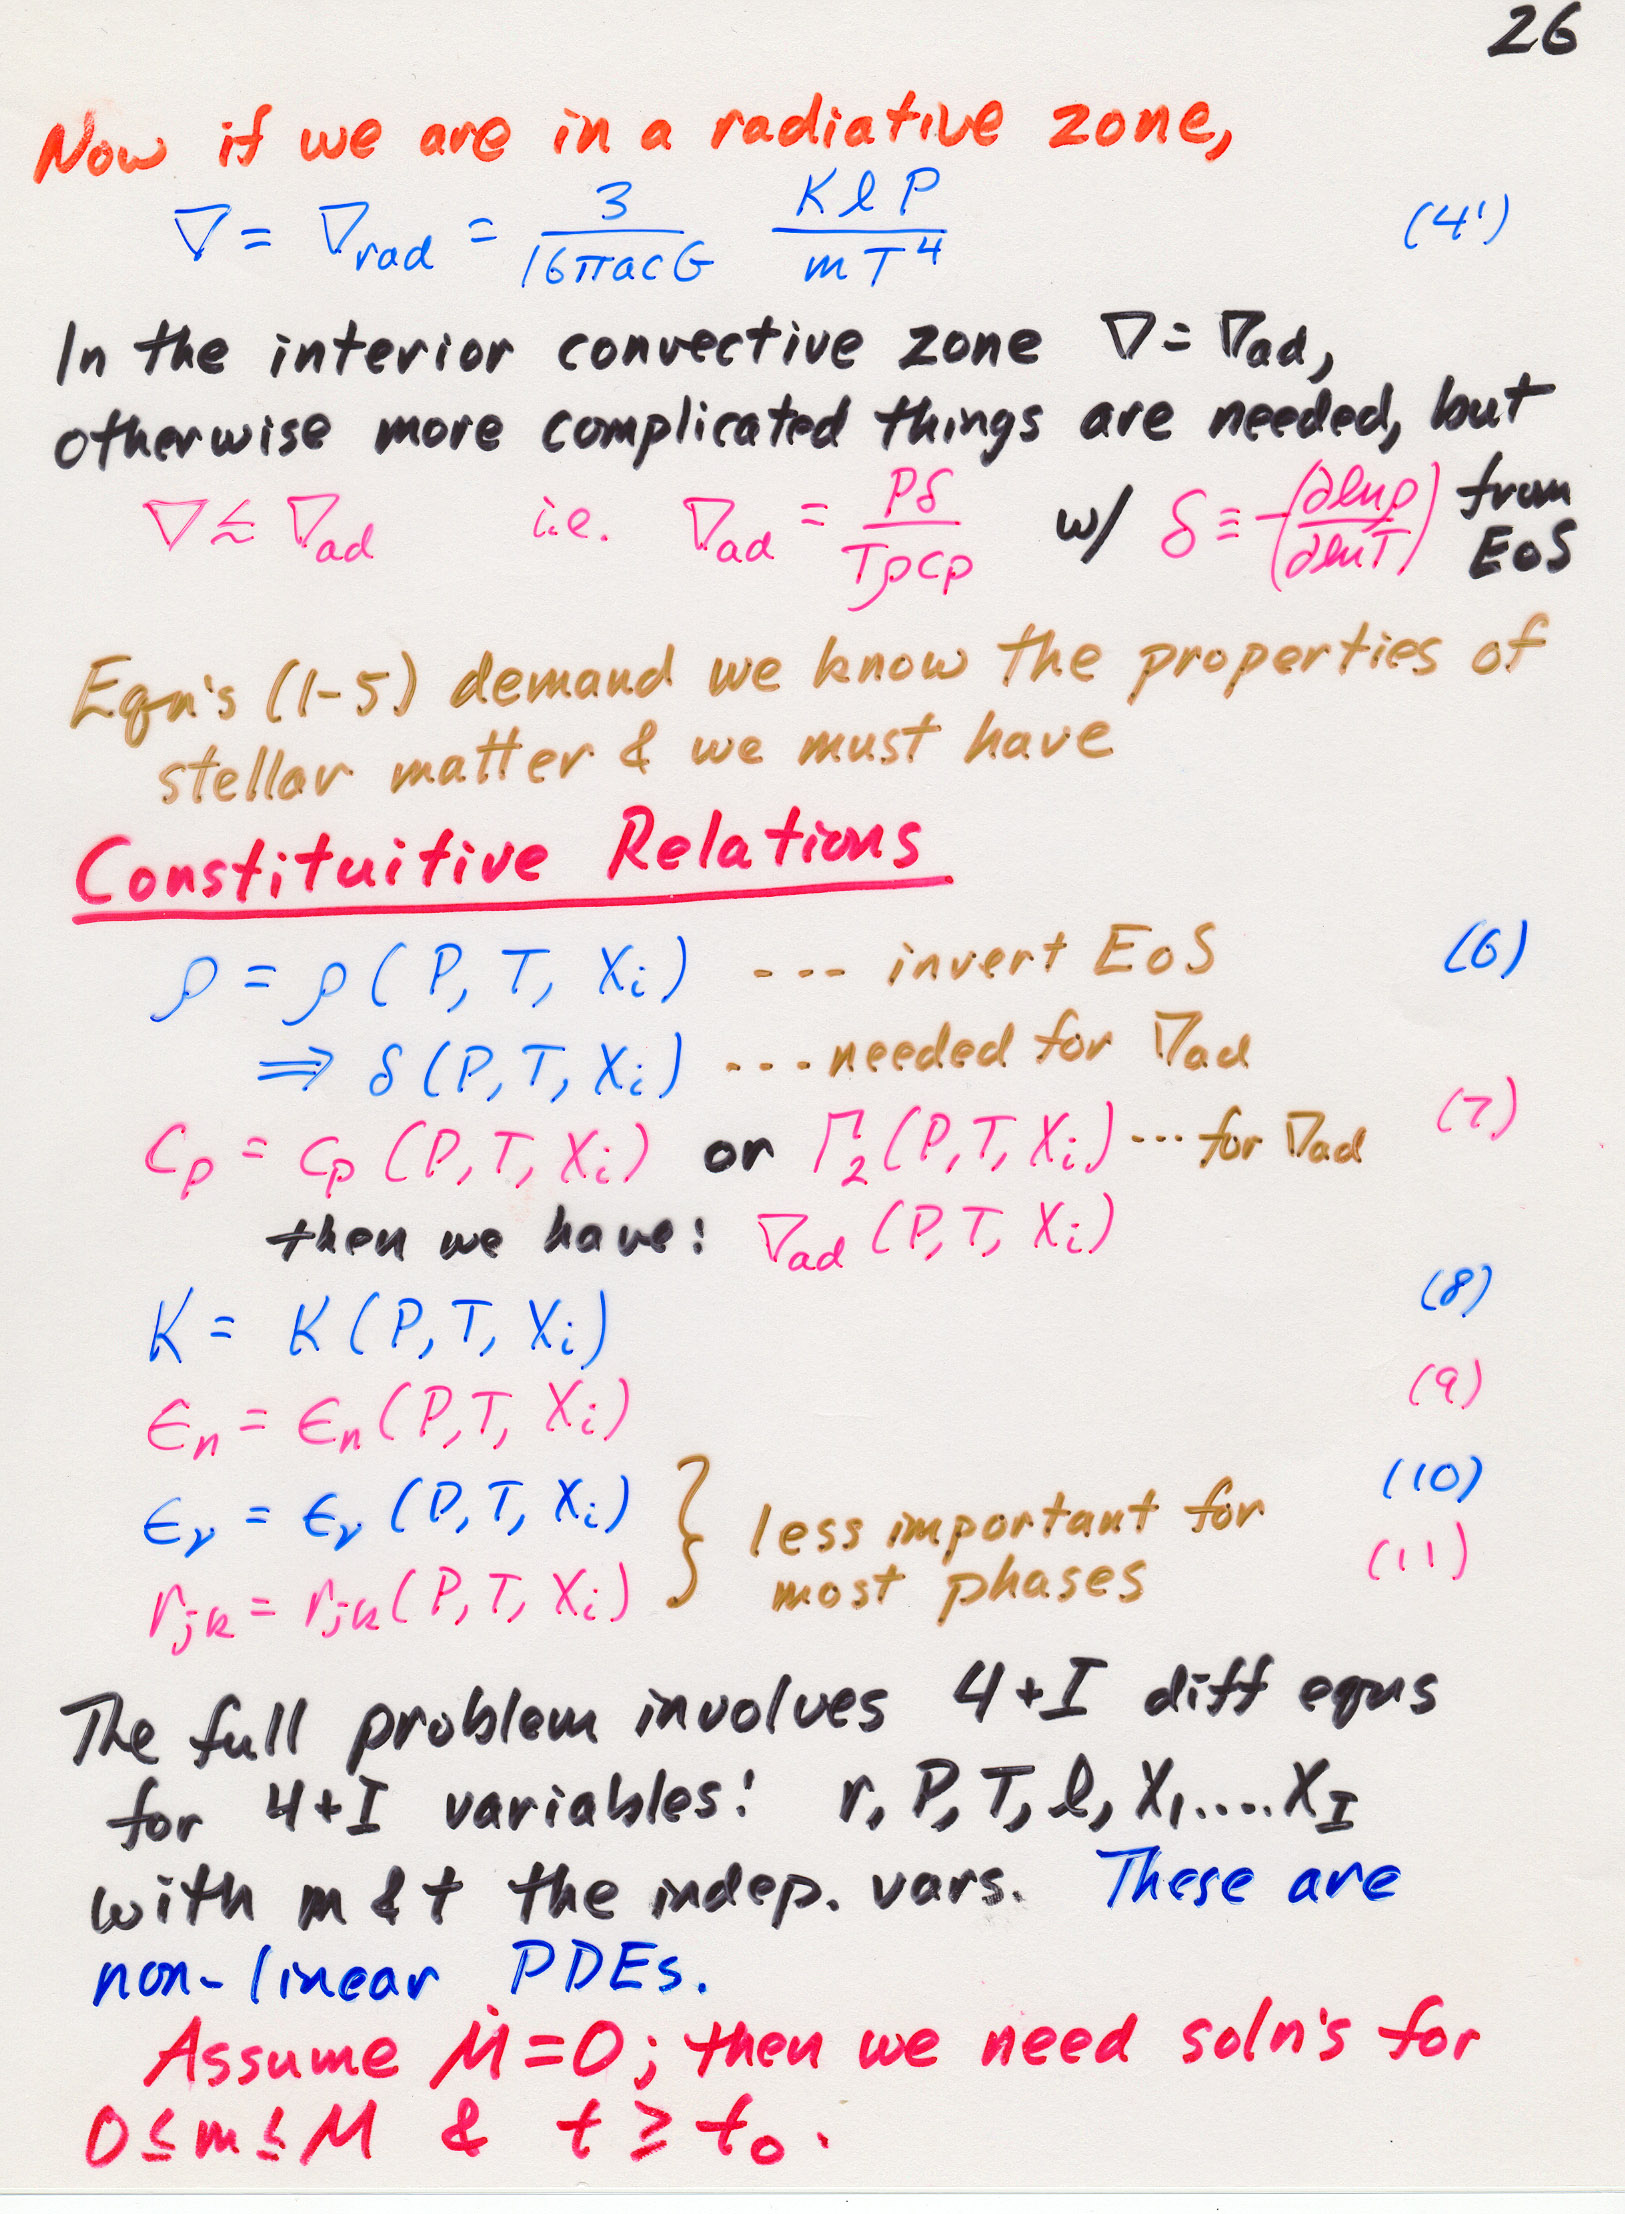 26
Now if we are in a radiative zone,
∇ = ∇rad = 3/(16πacG) κlP/(mT⁴) (4')
In the interior convective zone ∇ = ∇ad,
otherwise more complicated things are needed, but
∇ ≲ ∇ad i.e. ∇ad = Pδ/(Tρcp) w/ δ ≡ -(∂lnρ/∂lnT) from EoS
Eqn's (1-5) demand we know the properties of
stellar matter & we must have
Constituitive Relations
ρ = ρ(P, T, Xi) --- invert EoS (6)
⇒ δ(P, T, Xi) --- needed for ∇ad
cp = cp(P, T, Xi) or Γ2(P, T, Xi) --- for ∇ad (7)
then we have: ∇ad(P, T, Xi)
κ = κ(P, T, Xi) (8)
εn = εn(P, T, Xi) (9)
εν = εν(P, T, Xi) } less important for (10)
rjk = rjk(P, T, Xi) most phases (11)
The full problem involves 4+I diff eqns
for 4+I variables: r, P, T, l, X1....XI
with m & t the indep. vars. These are
non-linear PDEs.
Assume Ṁ=0; then we need soln's for
0≤m≤M & t ≥ t0.